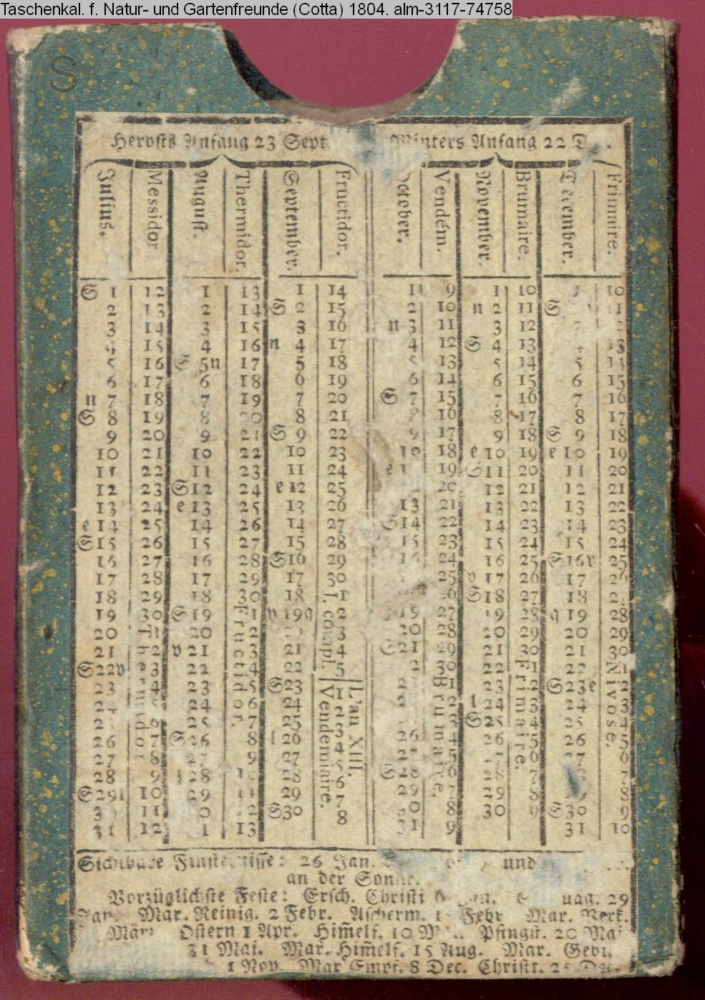 Taschenkal. f. Natur- und Gartenfreunde (Cotta) 1804. alm-3117-74758
S
Herbsts Anfang 23 Sept Winters Anfang 22
Julius. Messidor August. Thermidor. September. Fructidor. October. Vendém. November. Brumaire. December. Frimaire.
S 1 12 1 13 1 14 1 9 1 10 10
2 13 2 14 S 2 15 2 10 n 2 11 S
3 14 3 15 3 16 n 3 11 3 12
15 4 16 n 4 17 4 12 S 4 13 13
5 16 S 5 n 17 5 18 5 13 5 14 5 14
6 17 6 18 6 19 6 14 6 15 6 15
n 7 18 7 19 7 20 S 7 15 7 16 7 16
S 8 19 8 20 8 21 8 16 8 17 8 17
9 20 9 21 S 9 22 9 17 9 18 S 9 18
10 21 10 22 10 23 10 18 e 10 19 e 10 19
11 22 11 23 11 24 e 19 S 11 20 11 20
12 23 S 12 24 e 12 25 20 12 21 12 21
13 24 e 13 25 13 26 13 21 13 22 13 22
e 14 25 14 26 14 27 S 14 22 14 23 14 23
S 15 26 15 27 15 28 15 23 15 24 15 24
16 27 16 28 S 16 29 16 24 16 25 S 16 v 25
17 28 17 29 17 30 25 v 17 26 17 26
18 29 18 30 18 1 J. compl. 26 S 18 27 18
19 30 S 19 1 Fructidor. v 19 q 2 19 27 19 28 q 19 28
20 1 Thermidor 20 2 3 20 28 20 29 20 29
21 2 v 21 3 21 4 S 21 29 21 30 21 30
S 22 v 3 22 4 22 5 30 22 1 Frimaire. 22 1 Nivose.
23 4 23 5 S 23 1 L'an XIII. Vendemiaire. 1 Brumaire. 23 2 S 23 e 2
24 24 6 24 2 2 l 24 3 24 3
6 25 7 25 3 3 S 25 4 25 4
26 7 S 26 8 l 26 4 26 4 26 5 26 5
27 8 27 9 27 5 5 27 6 27 6
28 9 l 28 28 6 S 28 6 28 7 7
S 29 l 10 29 29 7 29 7 29 8 29 8
11 S 30 8 30 8 30 9 S 30 9
31 12 13 31 9 31 10
Sichtbare Finsternisse: 26 Jan. und
an der Sonne.
Vorzüglichste Feste: Ersch. Christi 6 Jan. 29
Jan. Mar. Reinig. 2 Febr. Ascherm. Febr Mar. Verk.
März Ostern 1 Apr. Himelf. 10 Pfingst. 20 Mai
31 Mai. Mar. Himelf. 15 Aug. Mar. Geb.
1 Nov. Mar Empf. 8 Dec. Christt. 25 Dec.